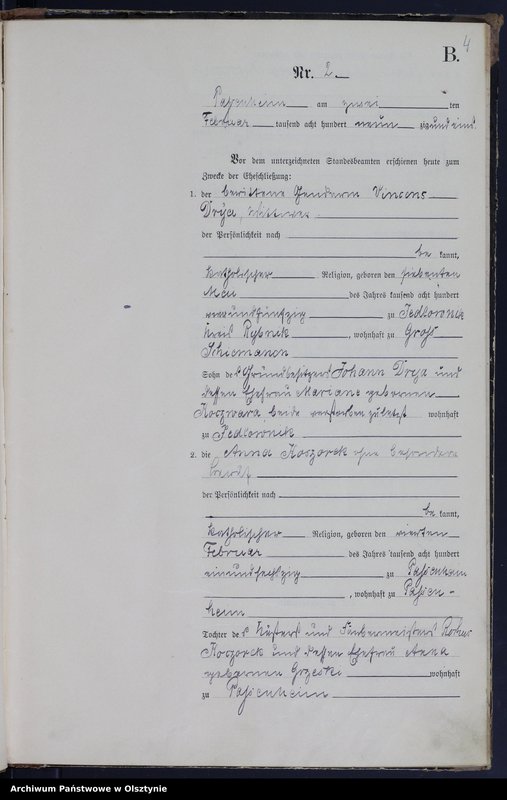 4
B.
Nr. 2
Passenheim am zwei ten
Februar tausend acht hundert neun zigundeins.
Vor dem unterzeichneten Standesbeamten erschienen heute zum
Zwecke der Eheschließung:
1. der berittene Gendarm Vincens
Dreja, Wittwer
der Persönlichkeit nach
be kannt,
katholischer Religion, geboren den siebenten
Mai des Jahres tausend acht hundert
vierundfünfzig zu Jedlownik
Kreis Rybnick, wohnhaft zu Groß
Schiemanen
Sohn des Grundbesitzers Johann Dreja und
dessen Ehefrau Mariane geborenen
Koczwara, beide verstorben zuletzt wohnhaft
zu Jedlownik
2. die Anna Koszorek ohne besonderen
Beruf
der Persönlichkeit nach
be kannt,
katholischer Religion, geboren den vierten
Februar des Jahres tausend acht hundert
einundsechszig zu Passenheim
, wohnhaft zu Passen-
heim
Tochter des Küsters und Färbermeisters
Koszorek und dessen Ehefrau Anna
geborenen Grzeski wohnhaft
zu Passenheim
Archiwum Państwowe w Olsztynie